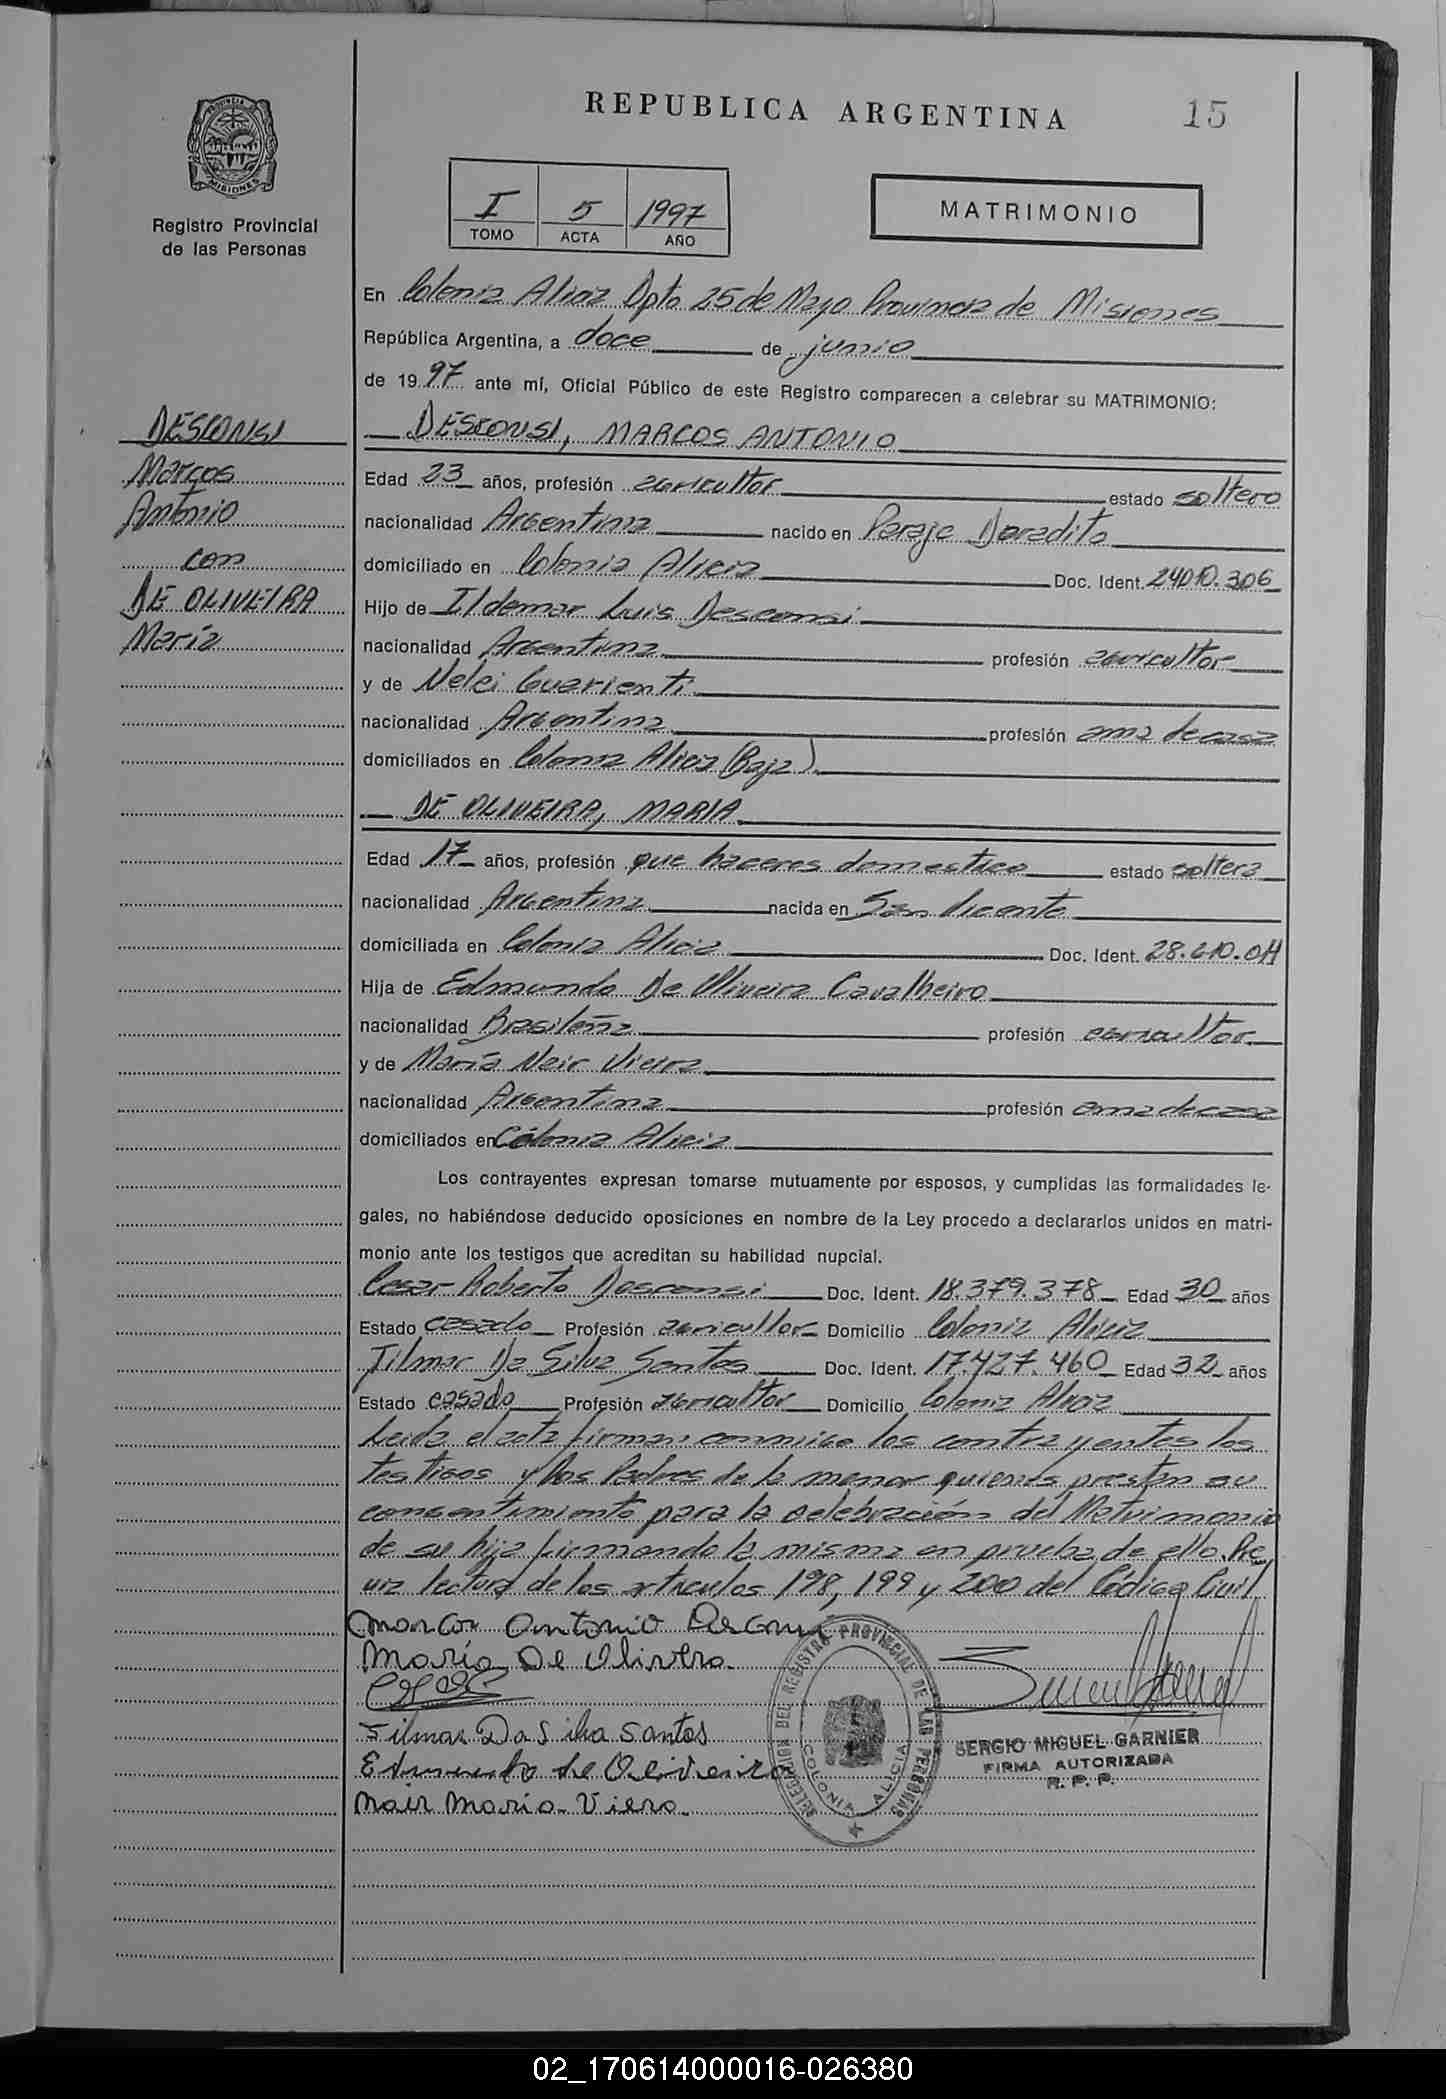 REPUBLICA ARGENTINA
15
PROVINCIA DE
MISIONES
Registro Provincial
de las Personas
I 5 1997
TOMO ACTA AÑO
MATRIMONIO
En Colonia Alicia Dpto 25 de Mayo Provincia de Misiones
República Argentina, a doce de junio
de 19 97 ante mí, Oficial Público de este Registro comparecen a celebrar su MATRIMONIO:
DESCONSI
Marcos
Antonio
con
DE OLIVEIRA
María
DESCONSI, MARCOS ANTONIO
Edad 23 años, profesión agricultor estado soltero
nacionalidad Argentina nacido en Paraje Doradito
domiciliado en Colonia Alicia Doc. Ident. 24010.306
Hijo de Ildemar Luis Desconsi
nacionalidad Argentina profesión agricultor
y de Nelci Guarienti
nacionalidad Argentina profesión ama de casa
domiciliados en Colonia Alicia (Baja)
DE OLIVEIRA, MARIA
Edad 17 años, profesión que haceres domestico estado soltera
nacionalidad Argentina nacida en San Vicente
domiciliada en Colonia Alicia Doc. Ident. 28.610.
Hija de Edmundo De Oliveira Cavalheiro
nacionalidad Brasileña profesión agricultor
y de María Neir Vieira
nacionalidad Argentina profesión ama de casa
domiciliados en Colonia Alicia
Los contrayentes expresan tomarse mutuamente por esposos, y cumplidas las formalidades le-
gales, no habiéndose deducido oposiciones en nombre de la Ley procedo a declararlos unidos en matri-
monio ante los testigos que acreditan su habilidad nupcial.
Cesar Roberto Desconsi Doc. Ident. 18.379.378 Edad 30 años
Estado casado Profesión agricultor Domicilio Colonia Alicia
Jilmar Da Silva Santos Doc. Ident. 17.427.460 Edad 32 años
Estado casado Profesión agricultor Domicilio Colonia Alicia
Leida el acta firman conmigo los contrayentes los
testigos y los Padres de la menor quienes prestan su
consentimiento para la celebración del Matrimonio
de su hija firmando la misma en prueba de ello. Pre
via lectura de los articulos 198, 199 y 200 del Código Civil
Marcos Antonio Desconsi
María De Oliveira
Jilmar Da Silva Santos
Edmundo de Oliveira
Nair Maria Viera
DELEGACION DEL REGISTRO PROVINCIAL DE LAS PERSONAS
COLONIA ALICIA
SERGIO MIGUEL GARNIER
FIRMA AUTORIZADA
R. P. P.
02_170614000016-026380